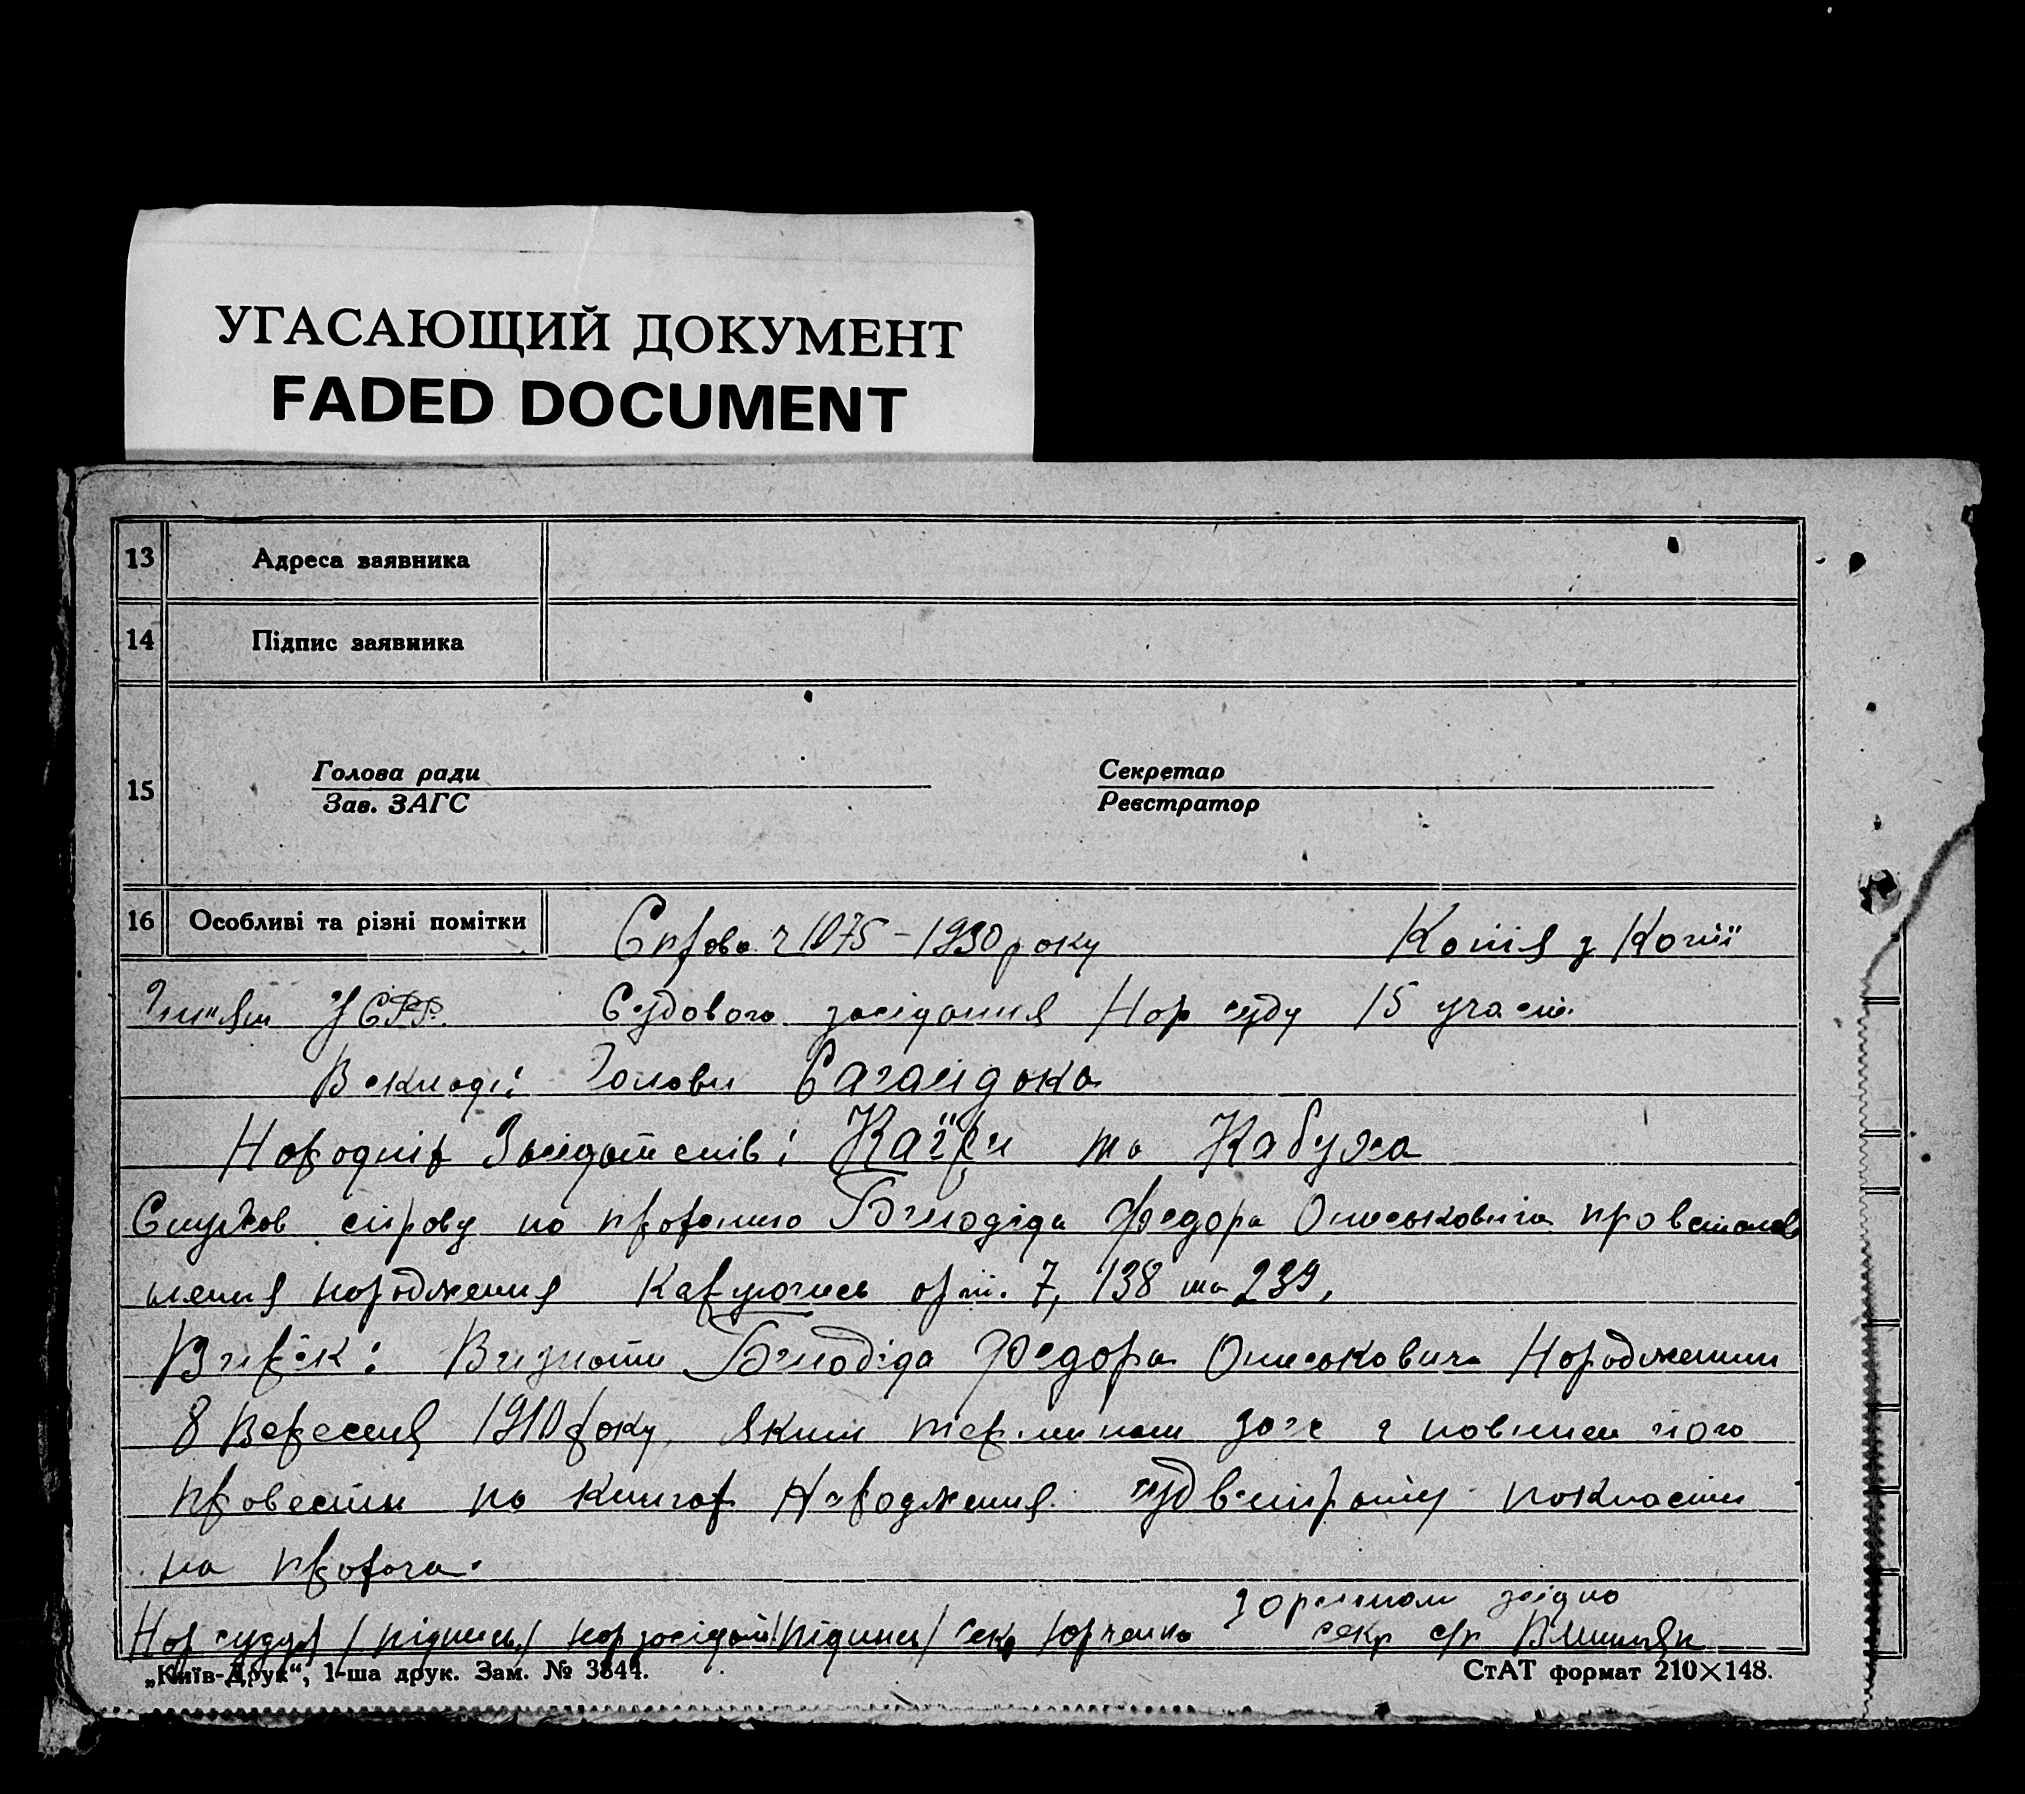 УГАСАЮЩИЙ ДОКУМЕНТ
FADED DOCUMENT
13 Адреса заявника
14 Підпис заявника
15 Голова ради Секретар
Зав. ЗАГС Реєстратор
16 Особливі та різні помітки Справа ч 1075 – 1930 року Копія з Копії
УСРР. Судового засідання Нар суду 15 участ.
В складі: Голови Сагайдака
Народніх Засідателів: та Кабуха
Слухав справу по проханню Білодіда Федора Оліськовича про встанов
лення народження Керуючись арт. 7, 138 та 239,
Вирік: Визнати Білодіда Федора Оліськовича Народженим
8 Вересня 1910 року, яким терміном загс і повинен його
провести по книгах Народження. судвитрати покласти
на прохача.
Нар суддя /підпись/ нар засідат /підпись/ Секр Юрченко З орігіналом згідно
секр с/р
„Київ-Друк“, 1-ша друк. Зам. № 3844. СтАТ формат 210×148.